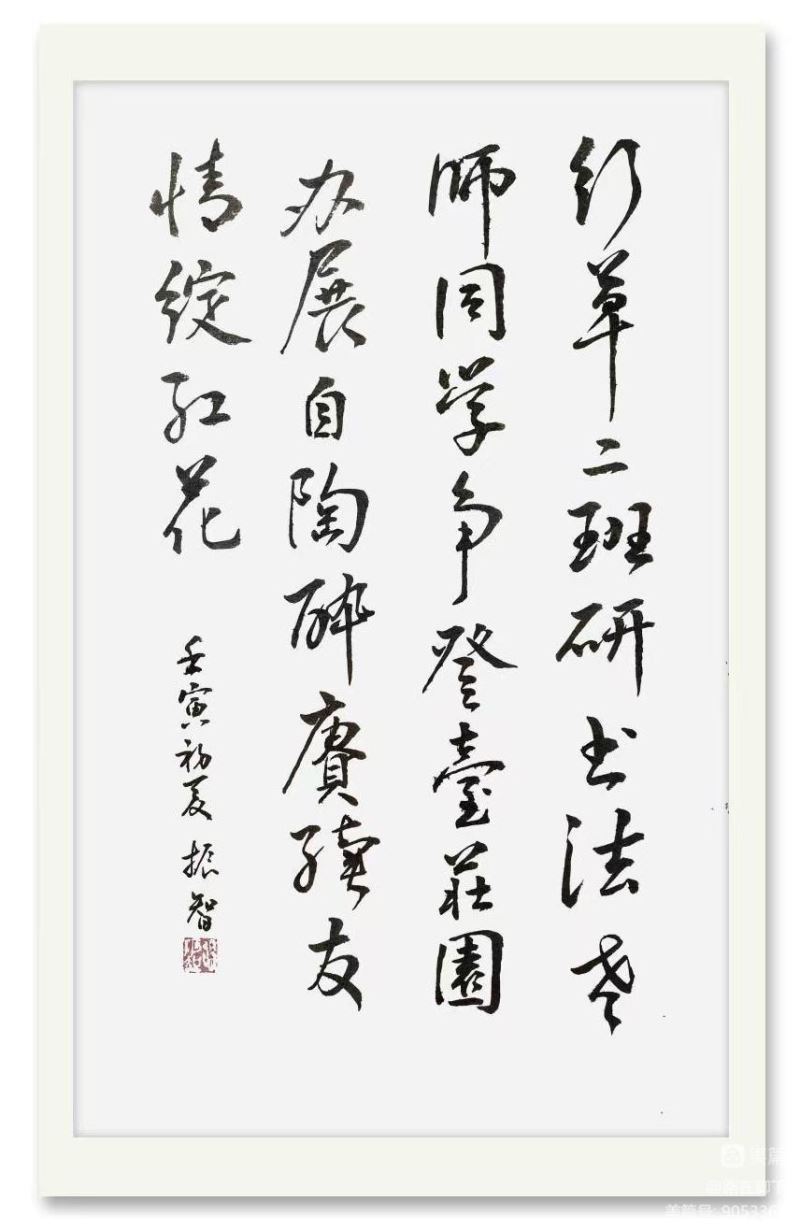 行草二班研书法老
师同学争登臺莊園
办展自陶醉赓续友
情绽红花
壬寅初夏 振智
美篇
美篇号: 905336